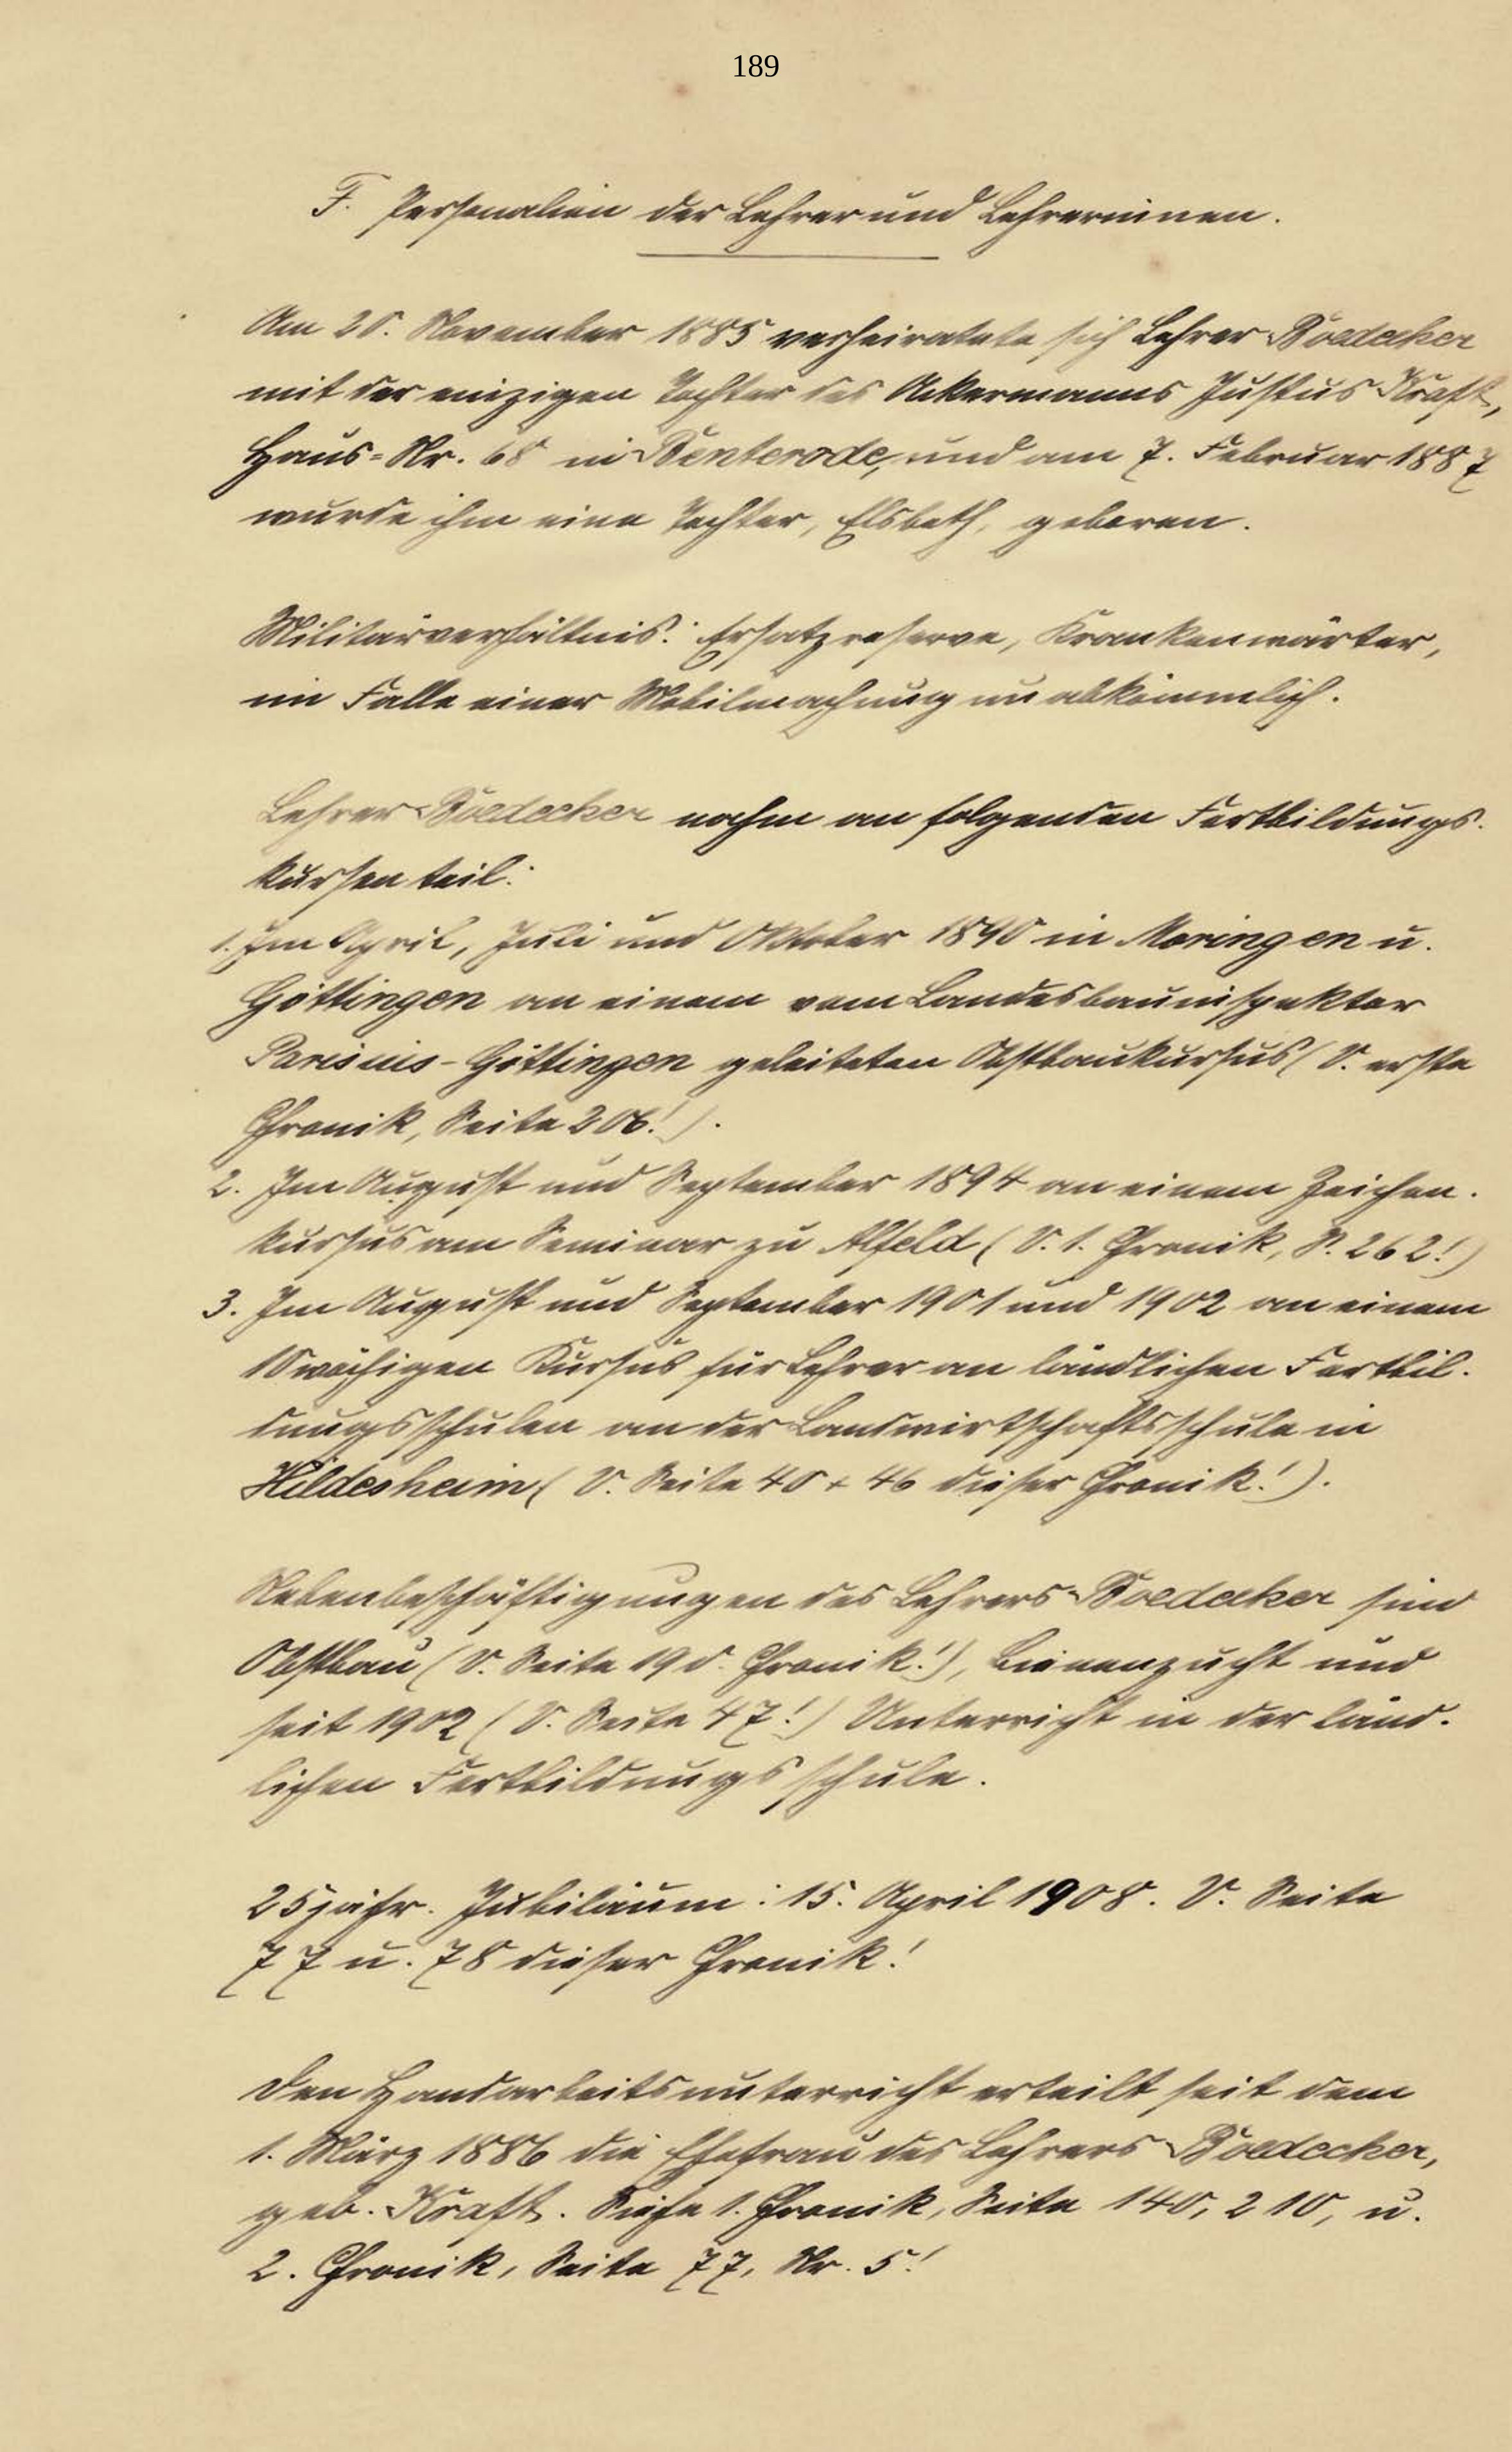 189
F. Personalien der Lehrer und Lehrerinnen.
Am 20. November 1885 verheiratete sich Lehrer Boedecker
mit der einzigen Tochter des Ackermanns Justus Kraft,
Haus=Nr. 68 in Benterode, und am 7. Februar 1887
wurde ihm eine Tochter, Elsbeth, geboren.
Militärverhältnis: Ersatzreserve, Krankenwärter,
im Falle einer Mobilmachung unabkömmlich.
Lehrer Boedecker nahm an folgenden Fortbildungs-
kursen teil:
1. Im April, Juli und Oktober 1890 in Moringen u.
Göttingen an einem vom Landesbauinspektor
Parisius-Göttingen geleiteten Obstbaukursus (V. erste
Chronik, Seite 206!).
2. Im August und September 1894 an einem Zeichen-
kursus am Seminar zu Alfeld (V. 1. Chronik, S. 262!)
3. Im August und September 1901 und 1902 an einem
10wöchigen Kursus für Lehrer an ländlichen Fortbil-
dungsschulen an der Landwirtschaftsschule in
Hildesheim (V. Seite 40 + 46 dieser Chronik!).
Nebenbeschäftigungen des Lehrers Boedecker sind
Obstbau (V. Seite 19 d. Chronik!), Bienenzucht und
seit 1902 (V. Seite 47!) Unterricht in der länd-
lichen Fortbildungsschule.
25jähr. Jubiläum: 15. April 1908. V. Seite
77 u. 78 dieser Chronik!
Den Handarbeitsunterricht erteilt seit dem
1. März 1886 die Ehefrau des Lehrers Boedecker,
geb. Kraft. Siehe 1. Chronik, Seite 140, 210, u.
2. Chronik, Seite 77, Nr. 5!